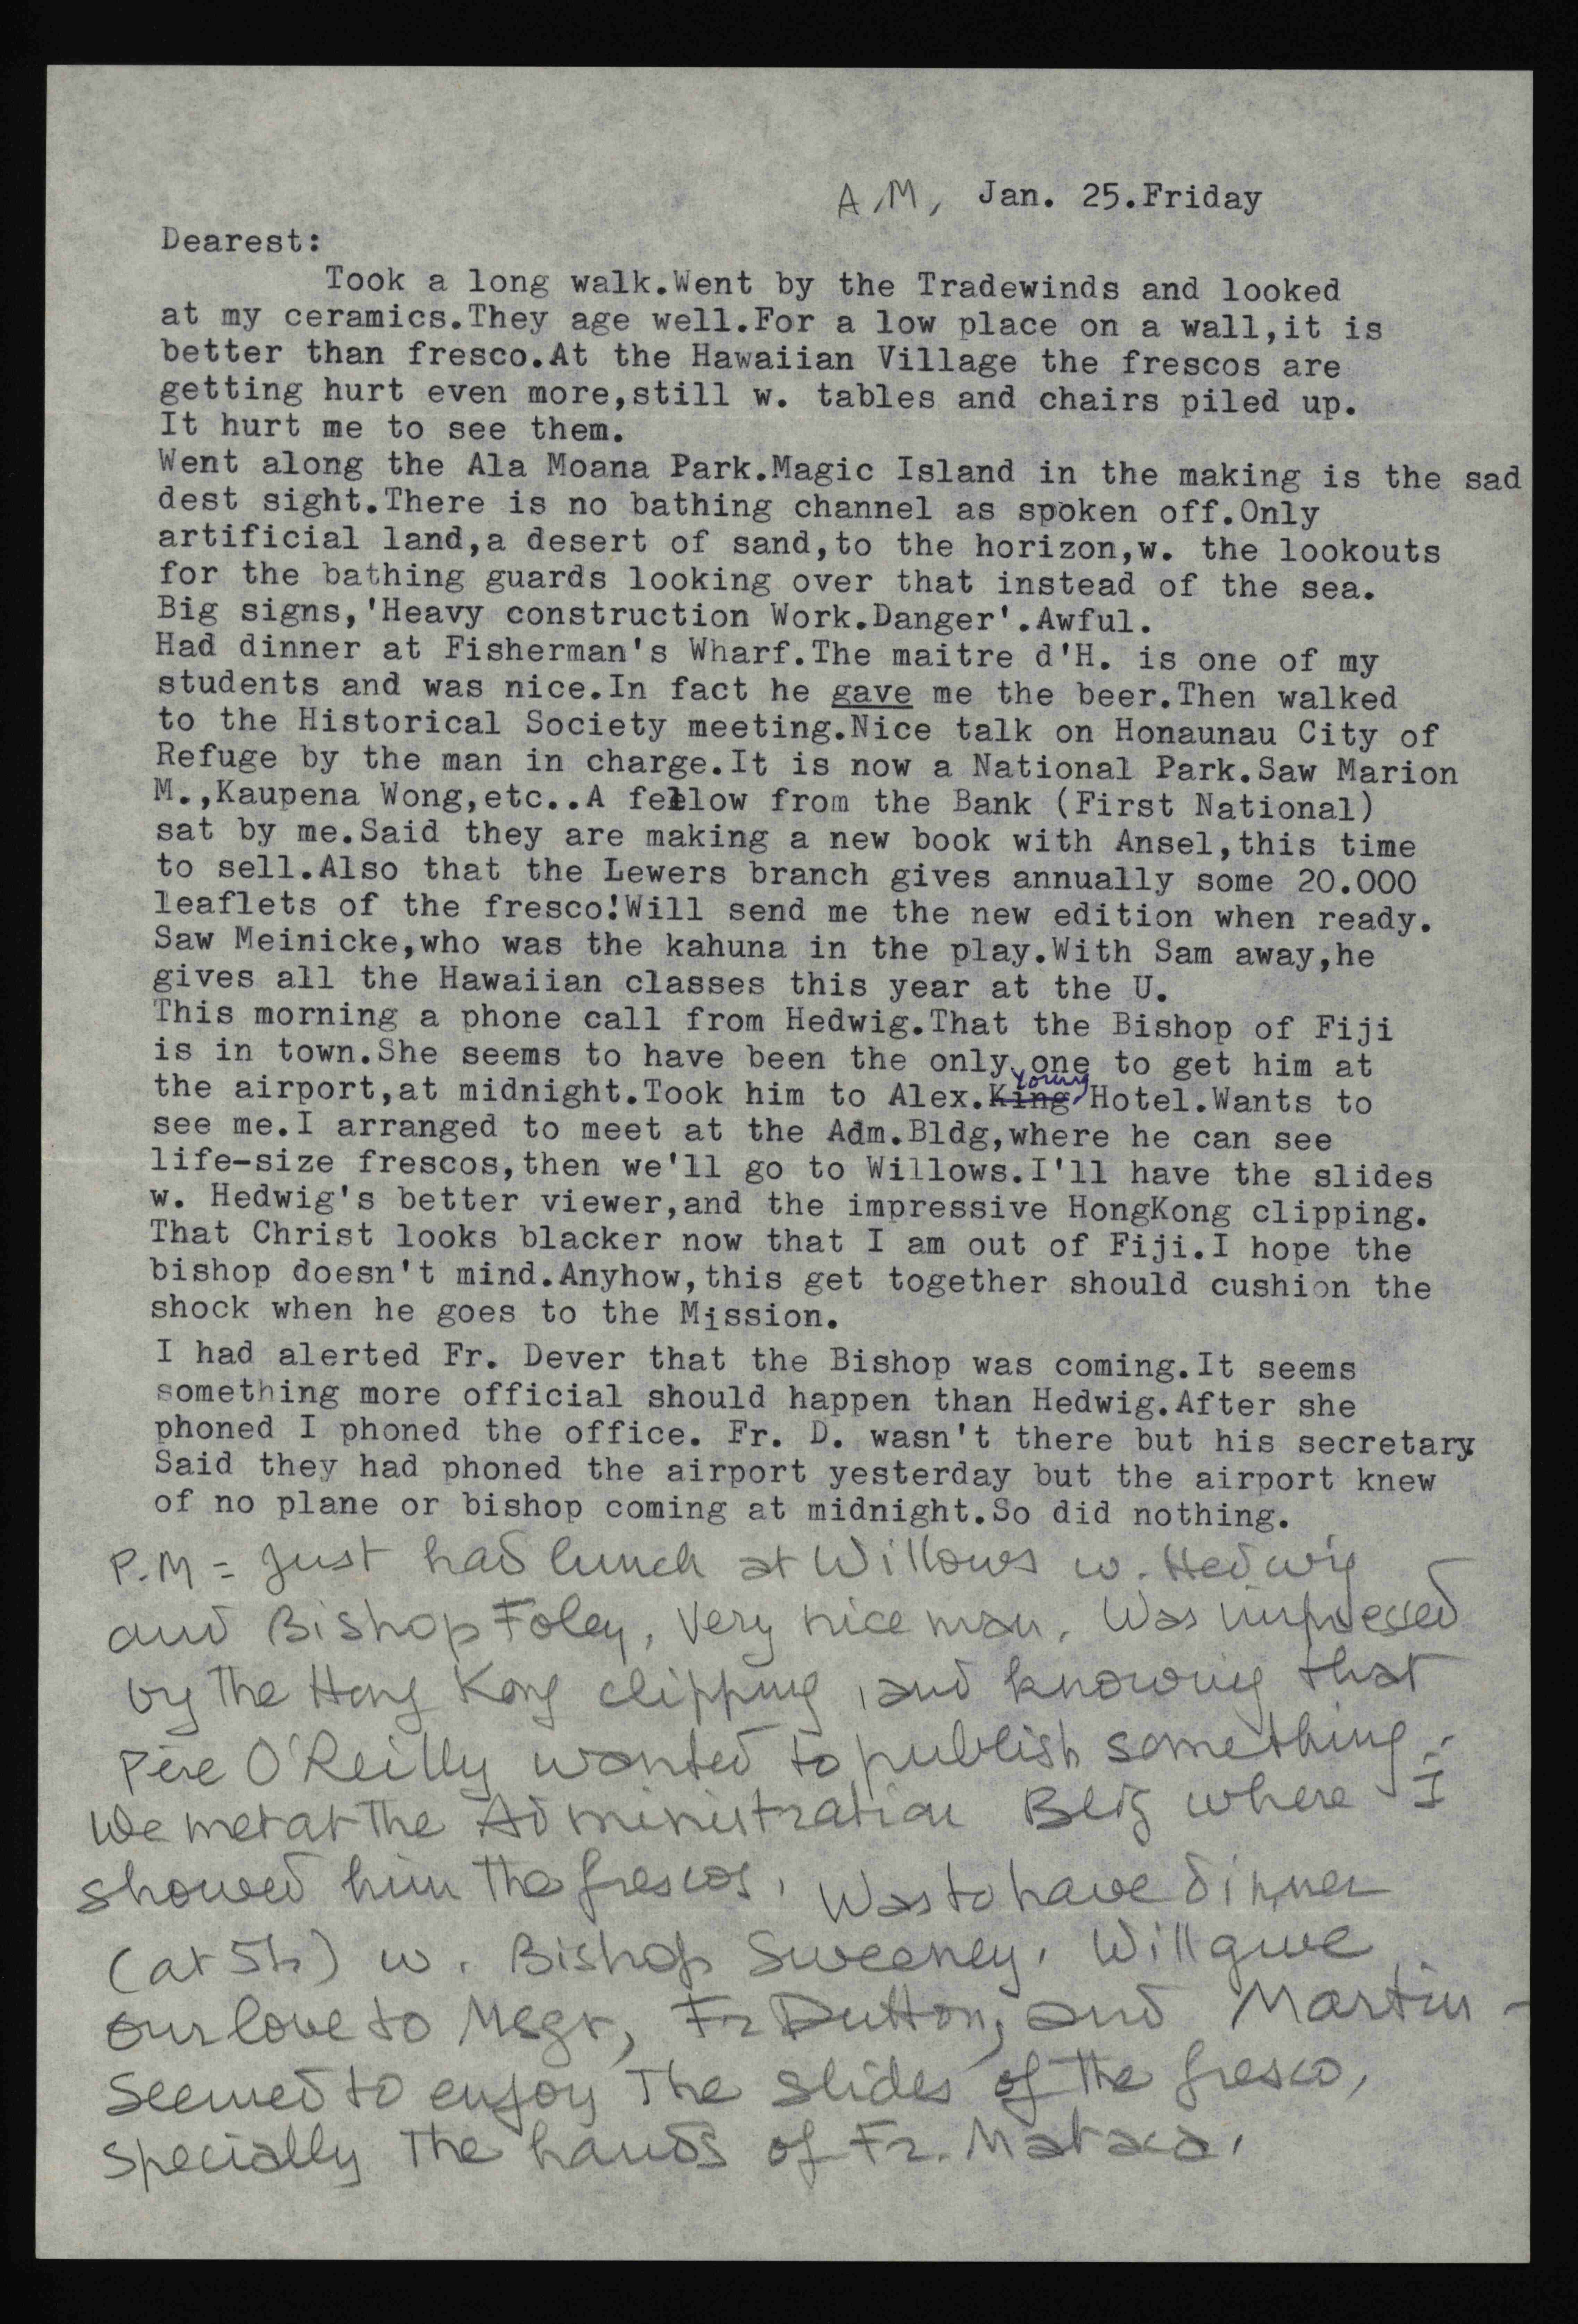 A.M, Jan. 25.Friday
Dearest:
Took a long walk.Went by the Tradewinds and looked
at my ceramics.They age well.For a low place on a wall,it is
better than fresco.At the Hawaiian Village the frescos are
getting hurt even more,still w. tables and chairs piled up.
It hurt me to see them.
Went along the Ala Moana Park.Magic Island in the making is the sad
dest sight.There is no bathing channel as spoken off.Only
artificial land,a desert of sand,to the horizon,w. the lookouts
for the bathing guards looking over that instead of the sea.
Big signs,'Heavy construction Work.Danger'.Awful.
Had dinner at Fisherman's Wharf.The maitre d'H. is one of my
students and was nice.In fact he gave me the beer.Then walked
to the Historical Society meeting.Nice talk on Honaunau City of
Refuge by the man in charge.It is now a National Park.Saw Marion
M.,Kaupena Wong,etc..A fellow from the Bank (First National)
sat by me.Said they are making a new book with Ansel,this time
to sell.Also that the Lewers branch gives annually some 20.000
leaflets of the fresco!Will send me the new edition when ready.
Saw Meinicke,who was the kahuna in the play.With Sam away,he
gives all the Hawaiian classes this year at the U.
This morning a phone call from Hedwig.That the Bishop of Fiji
is in town.She seems to have been the only one to get him at
the airport,at midnight.Took him to Alex.King Young Hotel.Wants to
see me.I arranged to meet at the Adm.Bldg,where he can see
life-size frescos,then we'll go to Willows.I'll have the slides
w. Hedwig's better viewer,and the impressive HongKong clipping.
That Christ looks blacker now that I am out of Fiji.I hope the
bishop doesn't mind.Anyhow,this get together should cushion the
shock when he goes to the Mission.
I had alerted Fr. Dever that the Bishop was coming.It seems
something more official should happen than Hedwig.After she
phoned I phoned the office. Fr. D. wasn't there but his secretary.
Said they had phoned the airport yesterday but the airport knew
of no plane or bishop coming at midnight.So did nothing.
P.M = Just had lunch at Willows w. Hedwig
and Bishop Foley, Very nice man. Was impressed
by the Hong Kong clipping, and knowing that
Père O'Reilly wanted to publish something.
We met at the Administration Bldg where I
showed him the frescos. Was to have dinner
(at 5h) w. Bishop Sweeney. Will give
our love to Msgr, Fr Dutton, and Martin -
Seemed to enjoy The slides of the fresco,
specially The hands of Fr. Mataca.